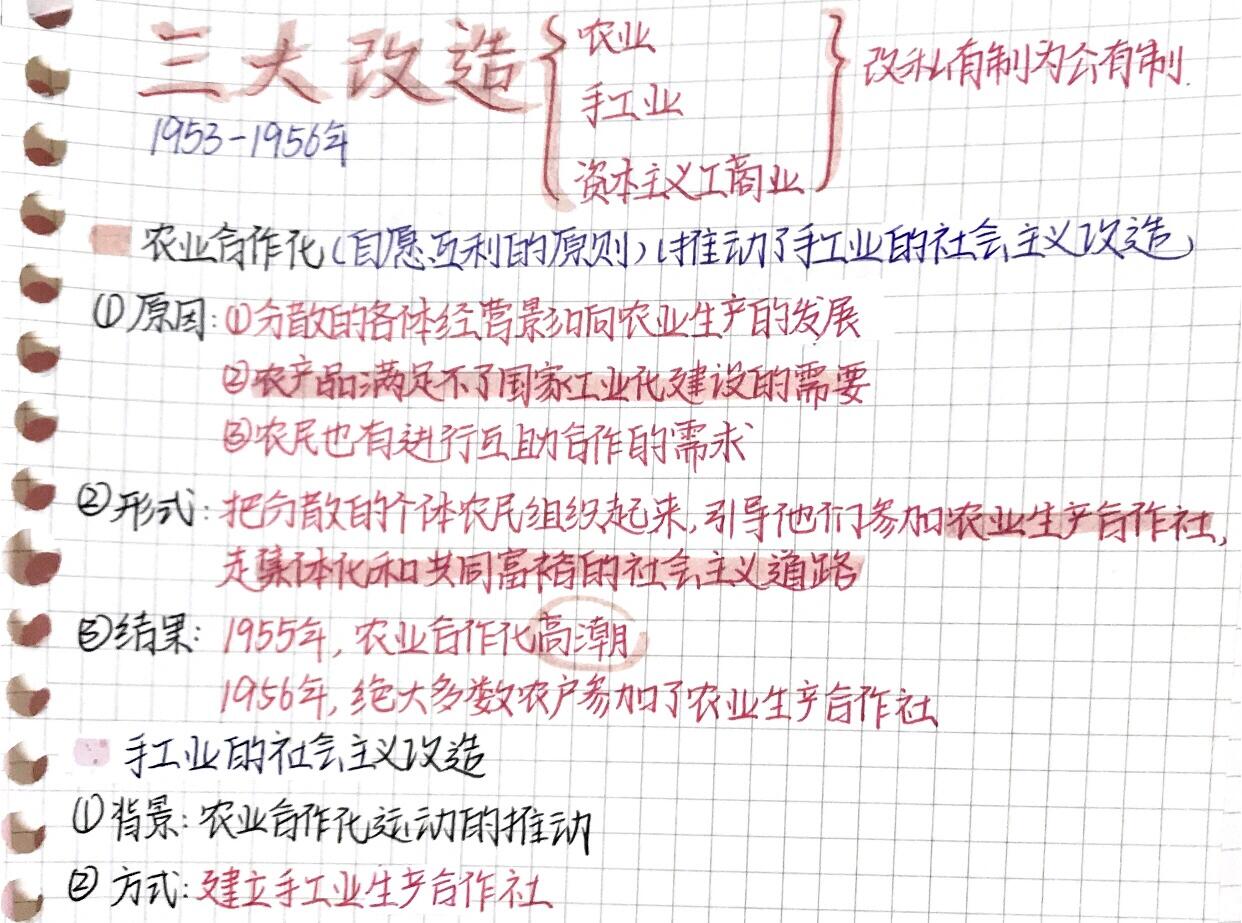 三大改造
农业
手工业
资本主义工商业
改私有制为公有制.
1953-1956年
农业合作化(自愿互利的原则)(推动了手工业的社会主义改造)
①原因:①分散的各体经营影响向农业生产的发展
②农产品满足不了国家工业化建设的需要
③农民也有进行互助合作的需求
②形式:把分散的个体农民组织起来,引导他们参加农业生产合作社,
走集体化和共同富裕的社会主义道路
③结果:1955年,农业合作化高潮
1956年,绝大多数农户参加了农业生产合作社
手工业的社会主义改造
①背景:农业合作化运动的推动
②方式:建立手工业生产合作社